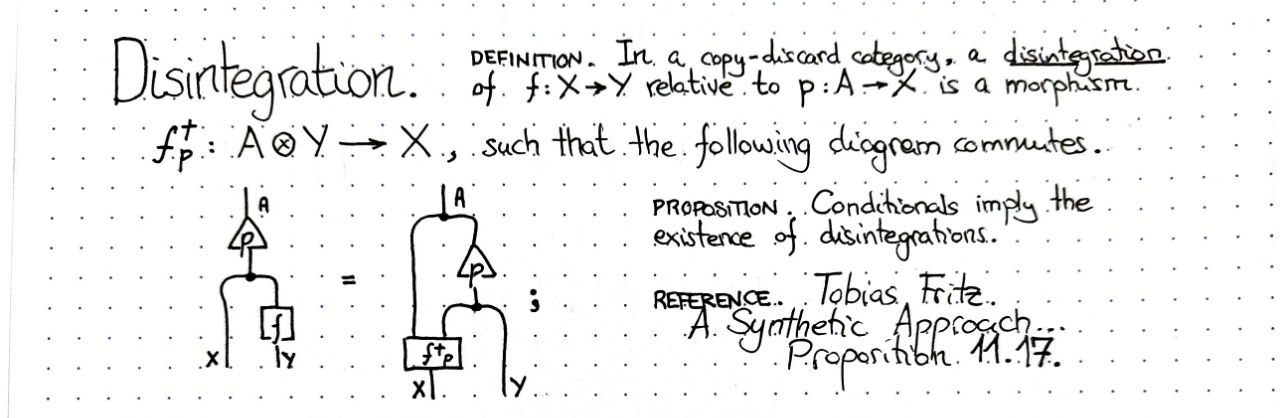 Disintegration.
DEFINITION. In a copy-discard category, a disintegration
of f: X → Y relative to p: A → X is a morphism
f†p : A ⊗ Y → X, such that the following diagram commutes.
A
p
f
X Y
=
A
p
f†p
X Y
;
PROPOSITION. Conditionals imply the
existence of disintegrations.
REFERENCE. Tobias Fritz.
A Synthetic Approach...
Proposition 11.17.